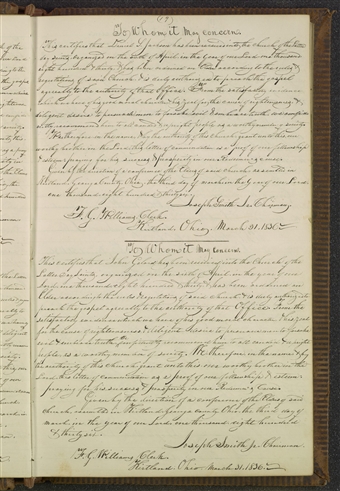 To Whom it May concern
This certifies that
has been received into the church of the latter
day saints, organized on the sixth of April in the year of our Lord one thousand
eight hundred & thirty & has been ordained an Elder according to the rules &
regulations of said Church & is duly authorized to preach the gospel
agreeably to the authority of that office. From the satisfactory evidence
which we have of his good moral character, & his zeal for the cause of righteousness, &
diligent desire to persuade men to forsake evil & embrace truth, we confidently
recommend him to all candid & upright people as a worthy member of society.
We therefore in the name, & by the authority of this church grant unto this our
worthy brother in the Lord this letter of commendation as a proof of our fellowship
& esteem: praying for his success & prosperity in our Redeemer's cause.
Given by the direction of a conference of the Elders of said church assembled in
Kirtland, Geauga County, Ohio, the third day of March in the year of our Lord
one thousand eight hundred & thirty six.
Joseph Smith Jr. Chairman
F. G. Williams Clerk
Kirtland Ohio, March 31. 1836.
To Whom it May concern.
This certifies that John
has been received into the Church of the
Latter Day Saints, organized on the sixth of April in the year of our
Lord one thousand eight hundred & thirty & has been ordained an
Elder according to the rules & regulations of said church & is duly authorized
to preach the gospel agreeably to the authority of that Office. From the
satisfactory evidence which we have of his good moral character, & his zeal
for the cause of righteousness, & diligent desire to persuade men to forsake
evil & embrace truth, we confidently recommend him to all candid & upright
people as a worthy member of society. We therefore in the name, & by
the authority of this church grant unto this our worthy brother in the
Lord this letter of commendation as a proof of our fellowship & esteem:
praying for his success & prosperity in our Redeemer's Cause.
Given by the direction of a conference of the Elders of said
church assembled in Kirtland, Geauga County, Ohio the third day of
March in the year of our Lord one thousand eight hundred
& thirty six.
Joseph Smith Jr. Chairman
F. G. Williams Clerk
Kirtland Ohio March 31. 1836.